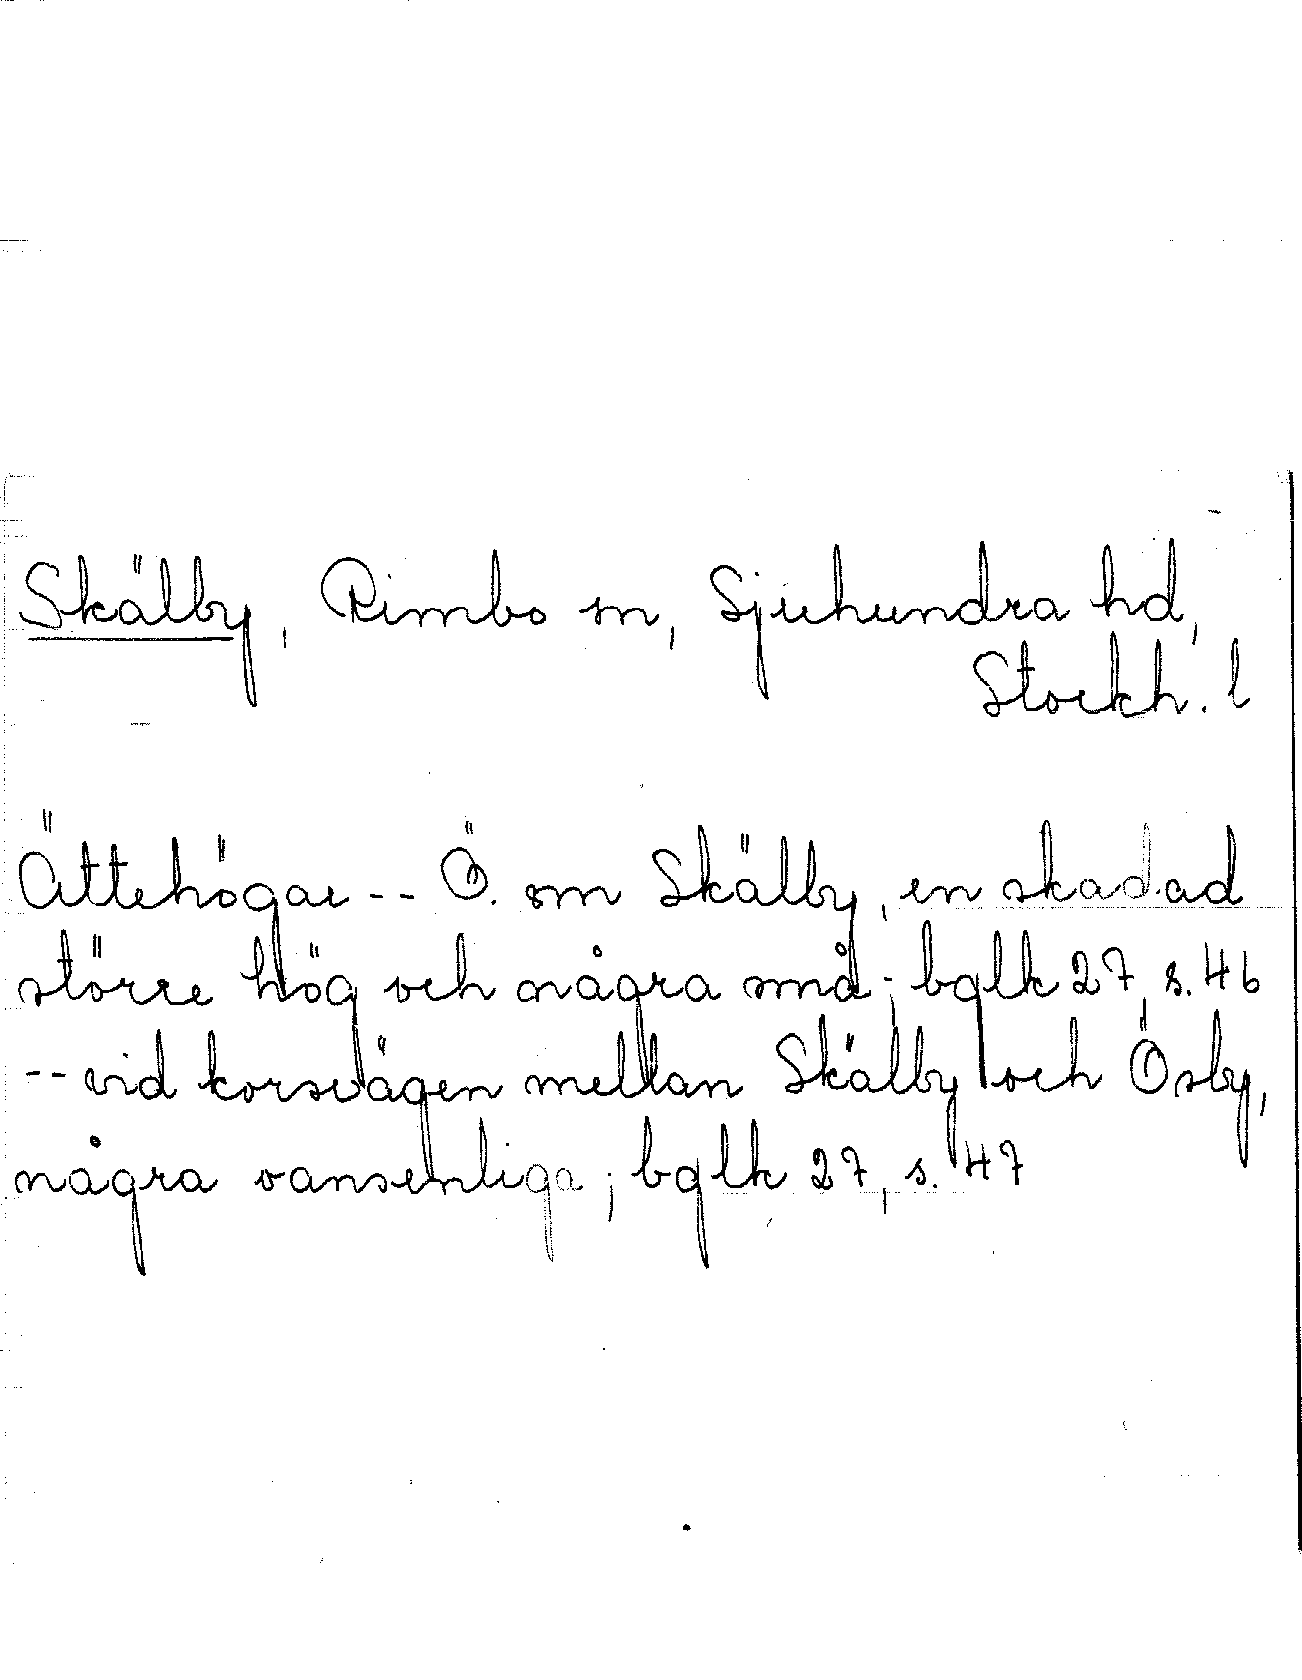 Skälby, Rimbo sn, Sjuhundra hd,
Stockh. l
Ättehögar -- Ö. om Skälby, en skadad
större hög och några små; bglk 27, s. 46
-- vid korsvägen mellan Skälby och Ösby,
några oansenliga; bglk 27, s. 47